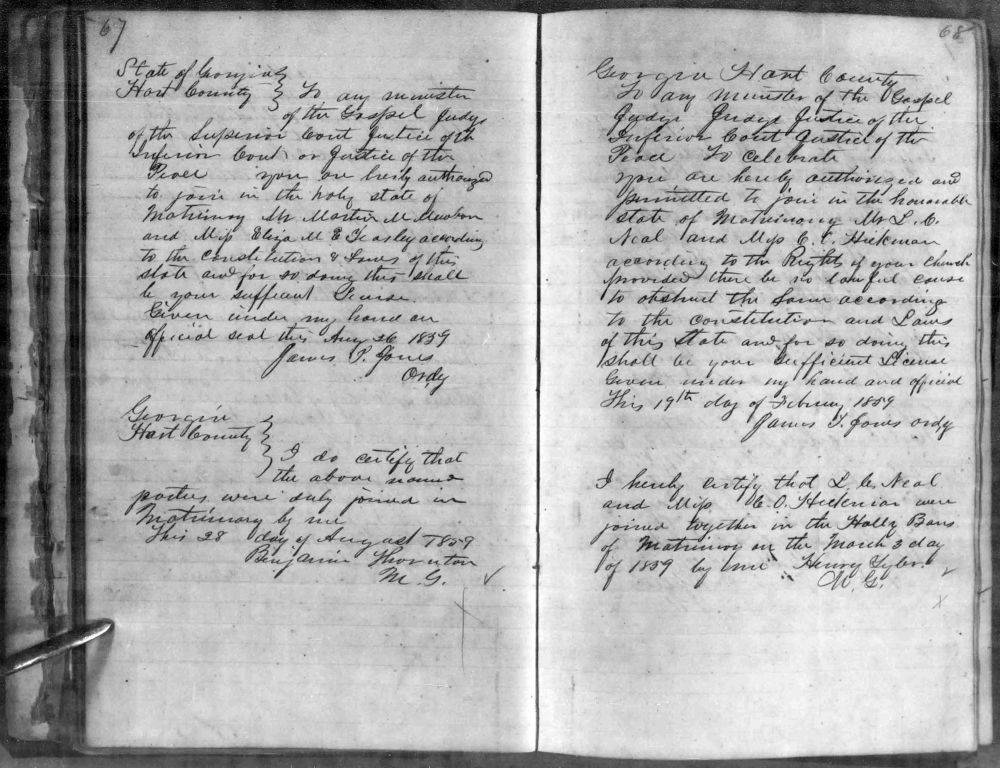 67
State of Georgia
Hart County } To any minister
of the Gospel Judge
of the Superior Cort Justice of the
Inferior Cort or Justice of the
Peace you are herby authorized
to join in the holy state of
Matrimony Mr Martin M
and Miss Eliza M E Teasley according
to the constitution & Laws of this
state and for so doing this shall
be your sufficent
Given under my hand an
official seal this Aug 26 1859
James T. Jones
Ordy
Georgia
Hart County }
I do certify that
the above named
parties were duly joined in
Matrimony by me
This 28 day of August 1859
Benjamin Thornton
M. G.
68
Georgia Hart County
To any Minister of the Gospel
Judge Justice of the
Inferior Cort Justice of the
Peace To celebrate
you are hereby authorized and
permitted to join in the honorable
state of Matrimony Mr L. C.
Neal and Miss C. O. Hickman
according to the Rights of your church
provided there be no lawful cause
to obstruct the same according
to the constitution and Laws
of this State and for so doing this
shall be your sufficient License
Given under my hand and official
This 19th day of Febuary 1859
James T. Jones ordy
I hereby certify that L. C. Neal
and Miss C. O. Hickman were
joined together in the Holly Bans
of Matrimony on the March 3 day
of 1859 by me Henry Tyler.
M. G.